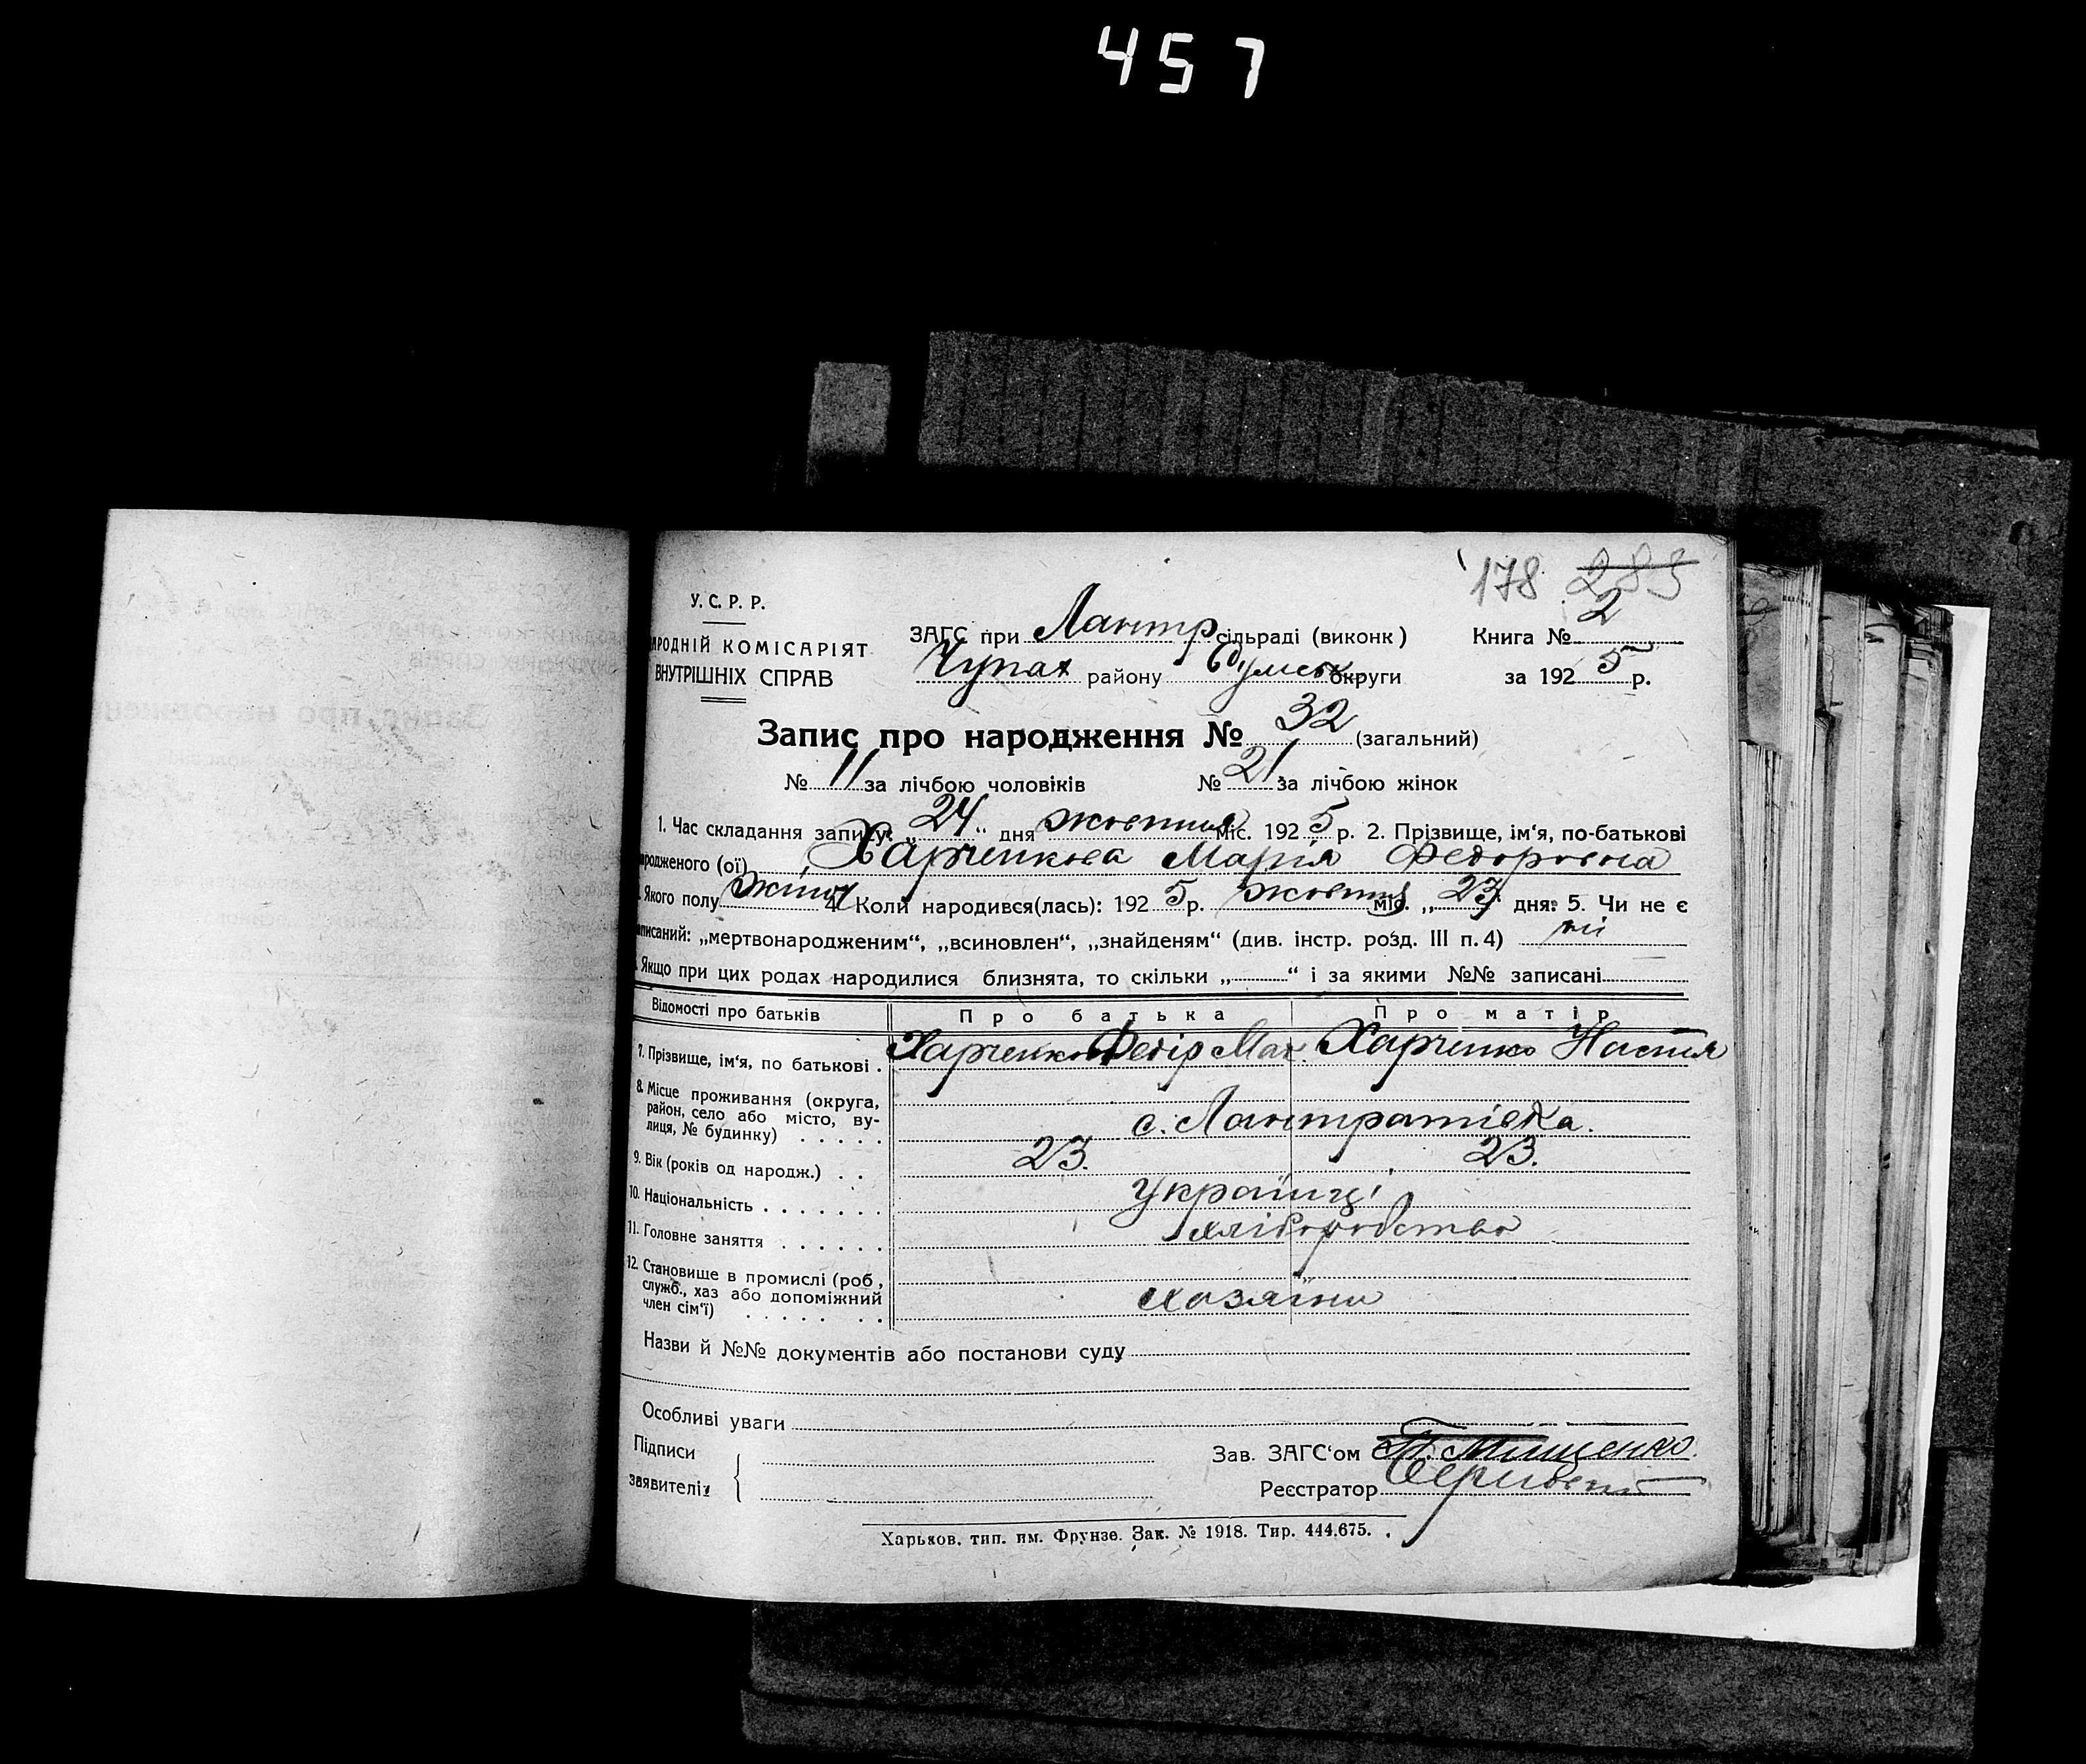 457
178 283
У. С. Р. Р.
АРОДНІЙ КОМІСАРІЯТ
ВНУТРІШНІХ СПРАВ
ЗАГС при Лантр. сільраді (виконк) Книга № 2
Чупах району Сумськ округи за 1925 р.
Запис про народження № 32 (загальний)
№ 11 за лічбою чоловіків № 21 за лічбою жінок
1. Час складання запису: „24“ дня жовтня міс. 1925 р. 2. Прізвище, ім'я, по-батькові
родженого (ої) Харченкова Марія Федоровна
Якого полу жіноч 4. Коли народився(лась): 1925 р. жовтня міс. „23“ дня: 5. Чи не є
писаний: „мертвонародженим“, „всиновлен“, „знайденям“ (див. інстр. розд. III п. 4) ні
Якщо при цих родах народилися близнята, то скільки „ “ і за якими №№ записані
Відомості про батьків Про батька Про матір
7. Прізвище, ім'я, по батькові . Харченко Федір Мак. Харченко Настя
8. Місце проживання (округа,
район, село або місто, ву-
лиця, № будинку) . . . . . с. Лантратівка.
9. Вік (років од народж.) . . 23. 23.
10. Національність . . . . . . . Українці
11. Головне заняття . . . . . . хліборобство
12. Становище в промислі (роб,
служб., хаз або допоміжний
член сім'ї) . . . . . . . хозяїни
Назви й №№ документів або постанови суду
Особливі уваги
Підписи
заявителів
Зав. ЗАГС'ом Мищенко.
Реєстратор
Харьков. тип. им. Фрунзе. Зак. № 1918. Тир. 444.675.